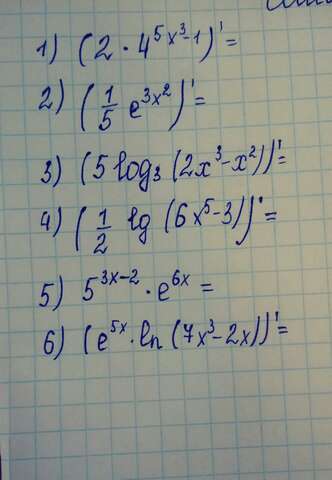 1) (2 · 4^(5x³-1))' =
2) (1/5 e^(3x²))' =
3) (5 log₃ (2x³-x²))' =
4) (1/2 lg (6x⁵-3))' =
5) 5^(3x-2) · e^(6x) =
6) (e^(5x) · ln (7x³-2x))' =